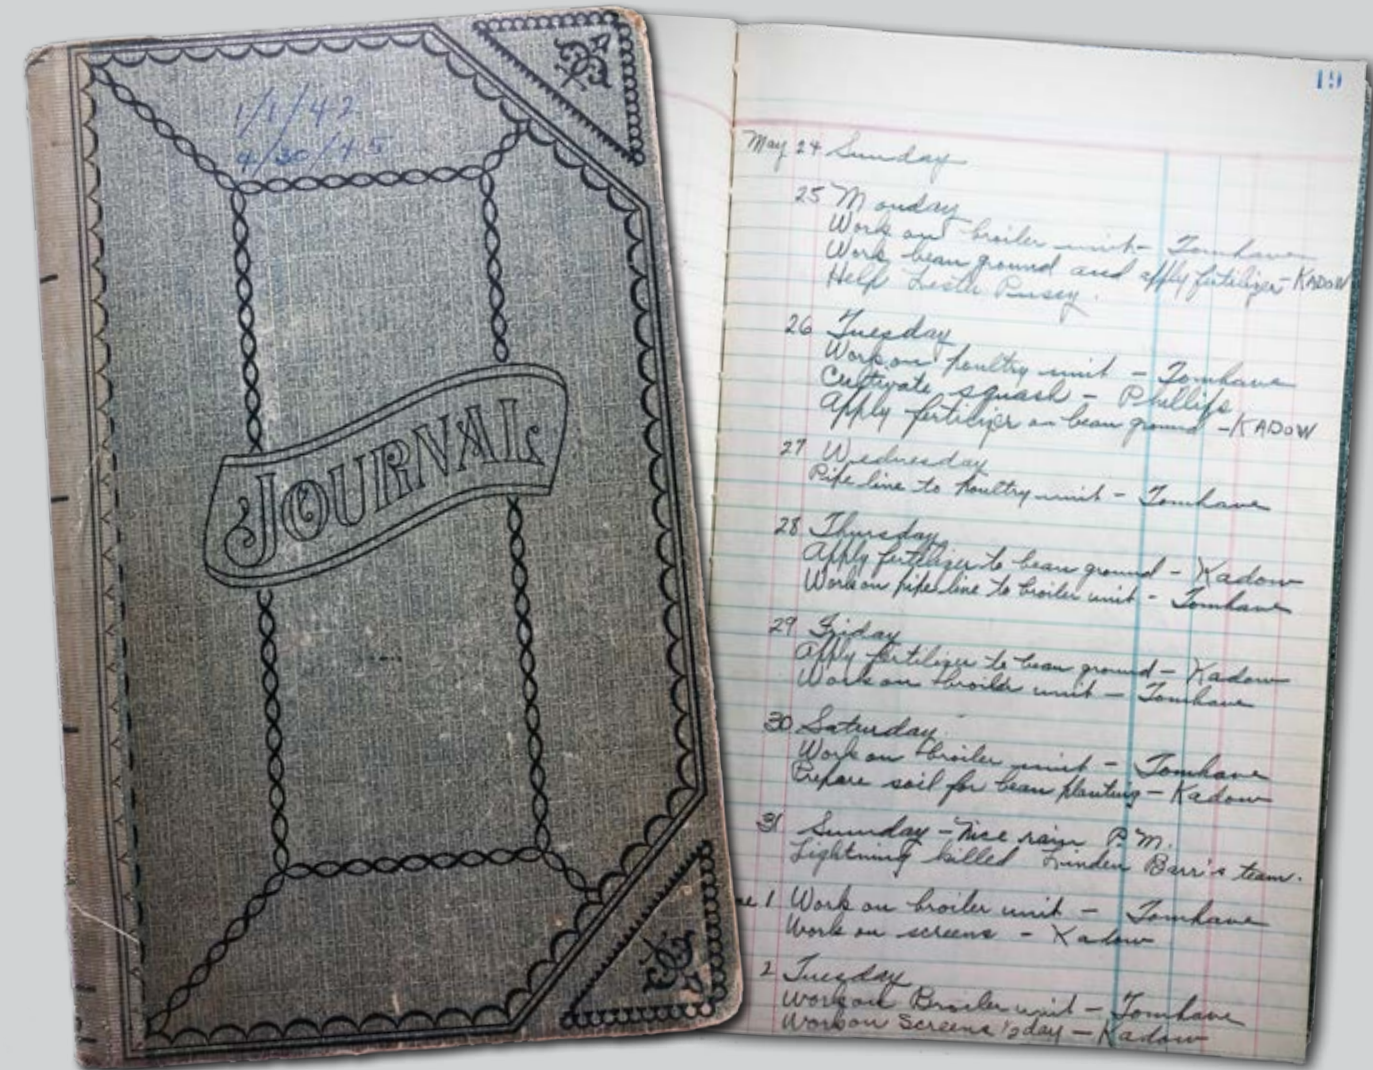 1/1/42
4/30/45
JOURNAL
19
May 24 Sunday
25 Monday
Work on broiler unit - Tomhave
Work bean ground and apply fertilizer - KADOW
Help Lester Pusey.
26 Tuesday
Work on poultry unit - Tomhave
Cultivate squash - Phillips
Apply fertilizer on bean ground - KADOW
27 Wednesday
Pipe line to poultry unit - Tomhave
28 Thursday
Apply fertilizer to bean ground - Kadow
Work on pipe line to broiler unit - Tomhave
29 Friday
Apply fertilizer to bean ground - Kadow
Work on broiler unit - Tomhave
30 Saturday
Work on broiler unit - Tomhave
Prepare soil for bean planting - Kadow
31 Sunday - Nice rain P.M.
Lightning killed Linden Barr's team.
ne 1 Work on broiler unit - Tomhave
Work on screens - Kadow
2 Tuesday
Work on Broiler unit - Tomhave
Work on Screens 1/2 day - Kadow